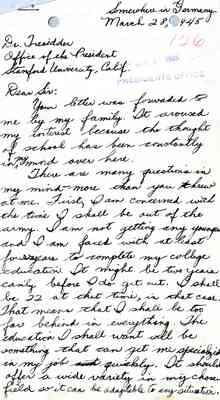 Somewhere in Germany
March 28, 1945
126
Dr. Tresidder
Office of the President
Stanford University, Calif.
PRESIDENT'S OFFICE
Dear Sir:
Your letter was forwarded to
me by my family. It aroused
my interest because the thought
of school has been constantly
in my mind over here.
There are many questions in
my mind - more than you threw
at me. First, I am concerned with
the time I shall be out of the
army. I am not getting any younger
and I am faced with at least
four years to complete my college
education. It might be two years
easily before I do get out. I shall
be 22 at that time, in that case.
That means that I shall be too
far behind in everything. The
education I shall want will be
something that can get me specialized
in my job and quickly. It should
offer a wide variety in my chosen
field so it can be adaptable to any situation.